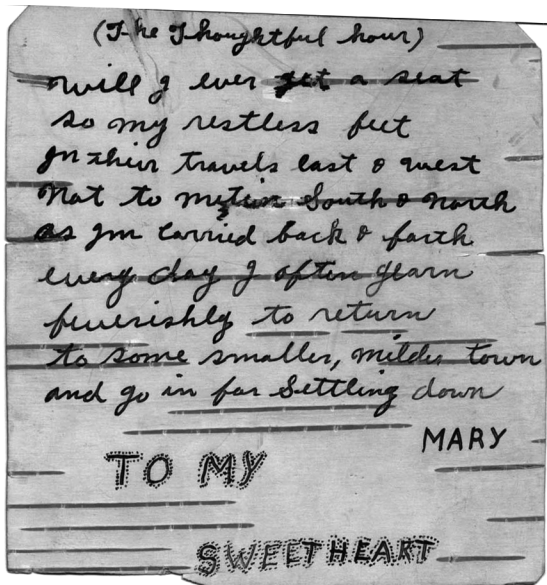 (The Thoughtful hour)
will I ever get a seat
so my restless feet
In their travels east & west
Not to metion South & North
as Im carried back & forth
every day I often yearn
feverishly to return
to some smaller, milder town
and go in for Settling down
MARY
TO MY
SWEETHEART